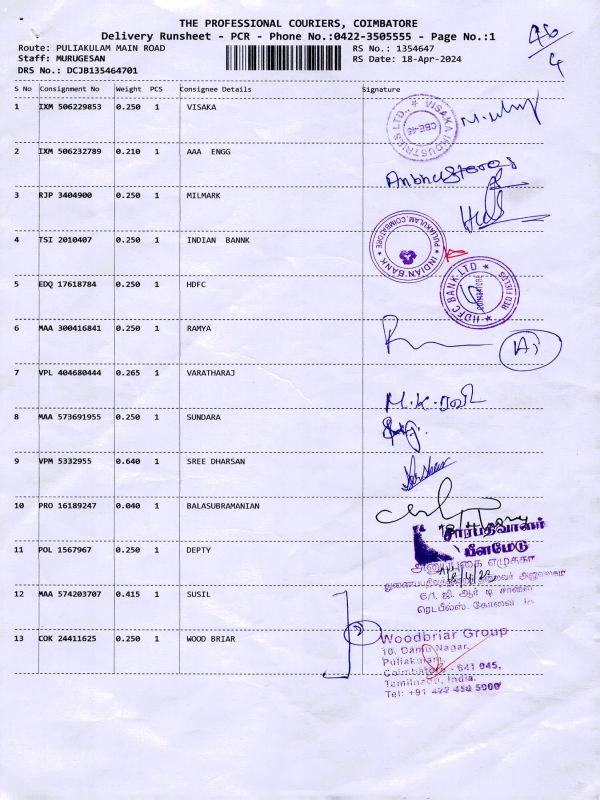 THE PROFESSIONAL COURIERS, COIMBATORE
Delivery Runsheet - PCR - Phone No.:0422-3505555 - Page No.:1
Route: PULIAKULAM MAIN ROAD RS No.: 1354647
Staff: MURUGESAN RS Date: 18-Apr-2024
DRS No.: DCJB135464701
46/4
S No Consignment No Weight PCS Consignee Details Signature
1 IXM 506229853 0.250 1 VISAKA
VISAKA INDUSTRIES LTD., CBE-45
2 IXM 506232789 0.210 1 AAA ENGG
3 RJP 3404900 0.250 1 MILMARK
4 TSI 2010407 0.250 1 INDIAN BANNK
INDIAN BANK PULIAKULAM, COIMBATORE
5 EDQ 17618784 0.250 1 HDFC
HDFC BANK LTD RED FIELDS COIMBATORE
6 MAA 300416841 0.250 1 RAMYA
7 VPL 404680444 0.265 1 VARATHARAJ
M.K.ரவி
8 MAA 573691955 0.250 1 SUNDARA
9 VPM 5332955 0.640 1 SREE DHARSAN
10 PRO 16189247 0.040 1 BALASUBRAMANIAN
11 POL 1567967 0.250 1 DEPTY
சார்பதிவாளர்
பீளமேடு
12 MAA 574203707 0.415 1 SUSIL
6/1, ஜி. ஆர் டி சாலை
ரெட்பீல்ஸ். கோவை
13 COK 24411625 0.250 1 WOOD BRIAR
Woodbriar Group
10, Damu Nagar,
Puliakulam,
Coimbatore - 641 045,
Tamilnadu, India.
Tel: +91 422 450 5000